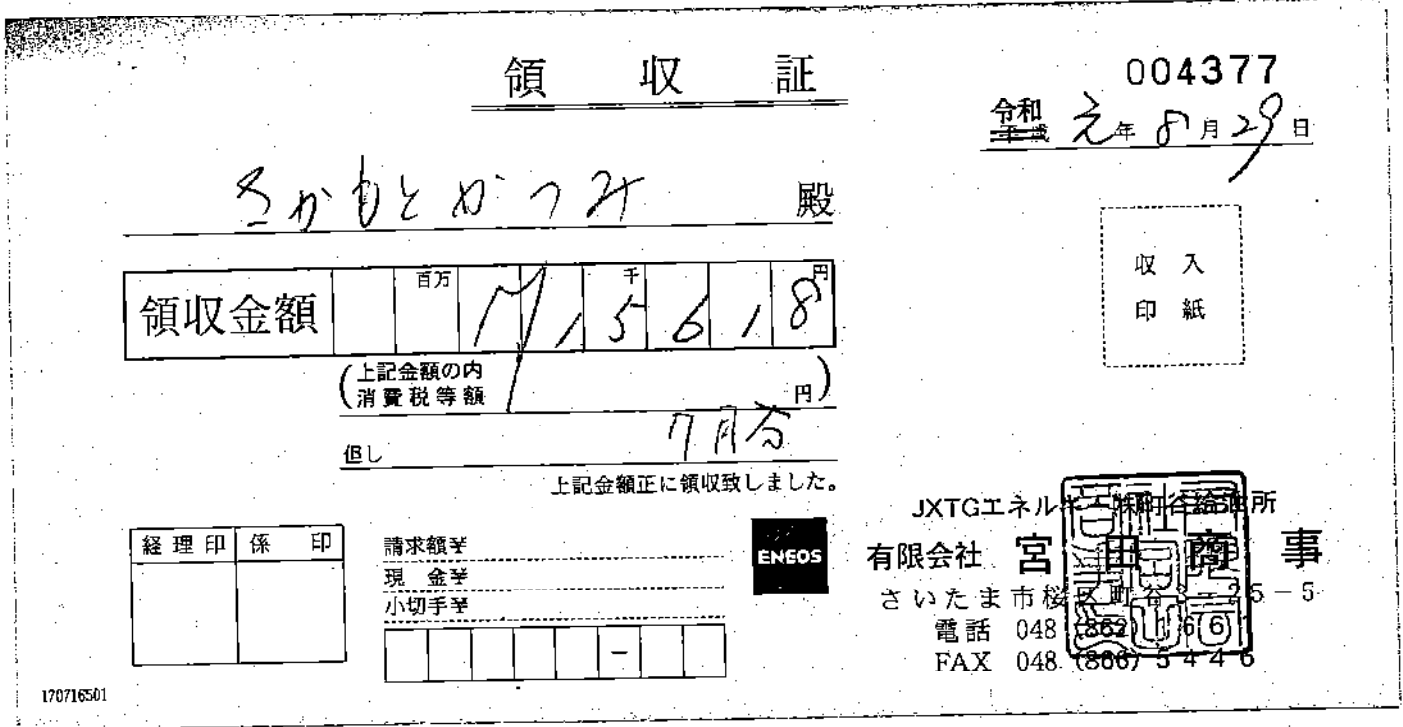 領収証
004377
令和
平成 元年 8月 29日
さかもとかつみ 殿
収入
印紙
領収金額 百万 千 円 ¥15618
(上記金額の内
消費税等額 円)
但し 7月分
上記金額正に領収致しました。
経理印 係印
請求額¥
現 金¥
小切手¥
-
ENEOS
JXTGエネルギー㈱町谷給油所
有限会社 宮田商事
さいたま市桜区町谷3-25-5
電話 048 (862) 1661
FAX 048 (866) 5446
170716501